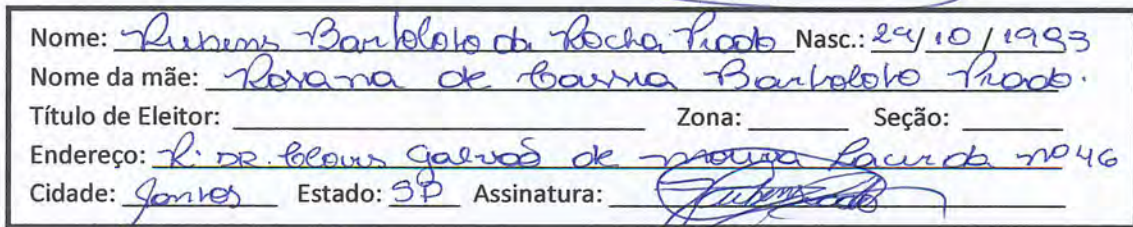 Nome: Rubens Bartoloto da Rocha Prado Nasc.: 29/10/1993
Nome da mãe: Rosana de Cassia Bartoloto Prado.
Título de Eleitor: Zona: Seção:
Endereço: R. DR. Clovis Galvão de Moura Lacerda nº 46
Cidade: Santos Estado: SP Assinatura: Rubens Prado